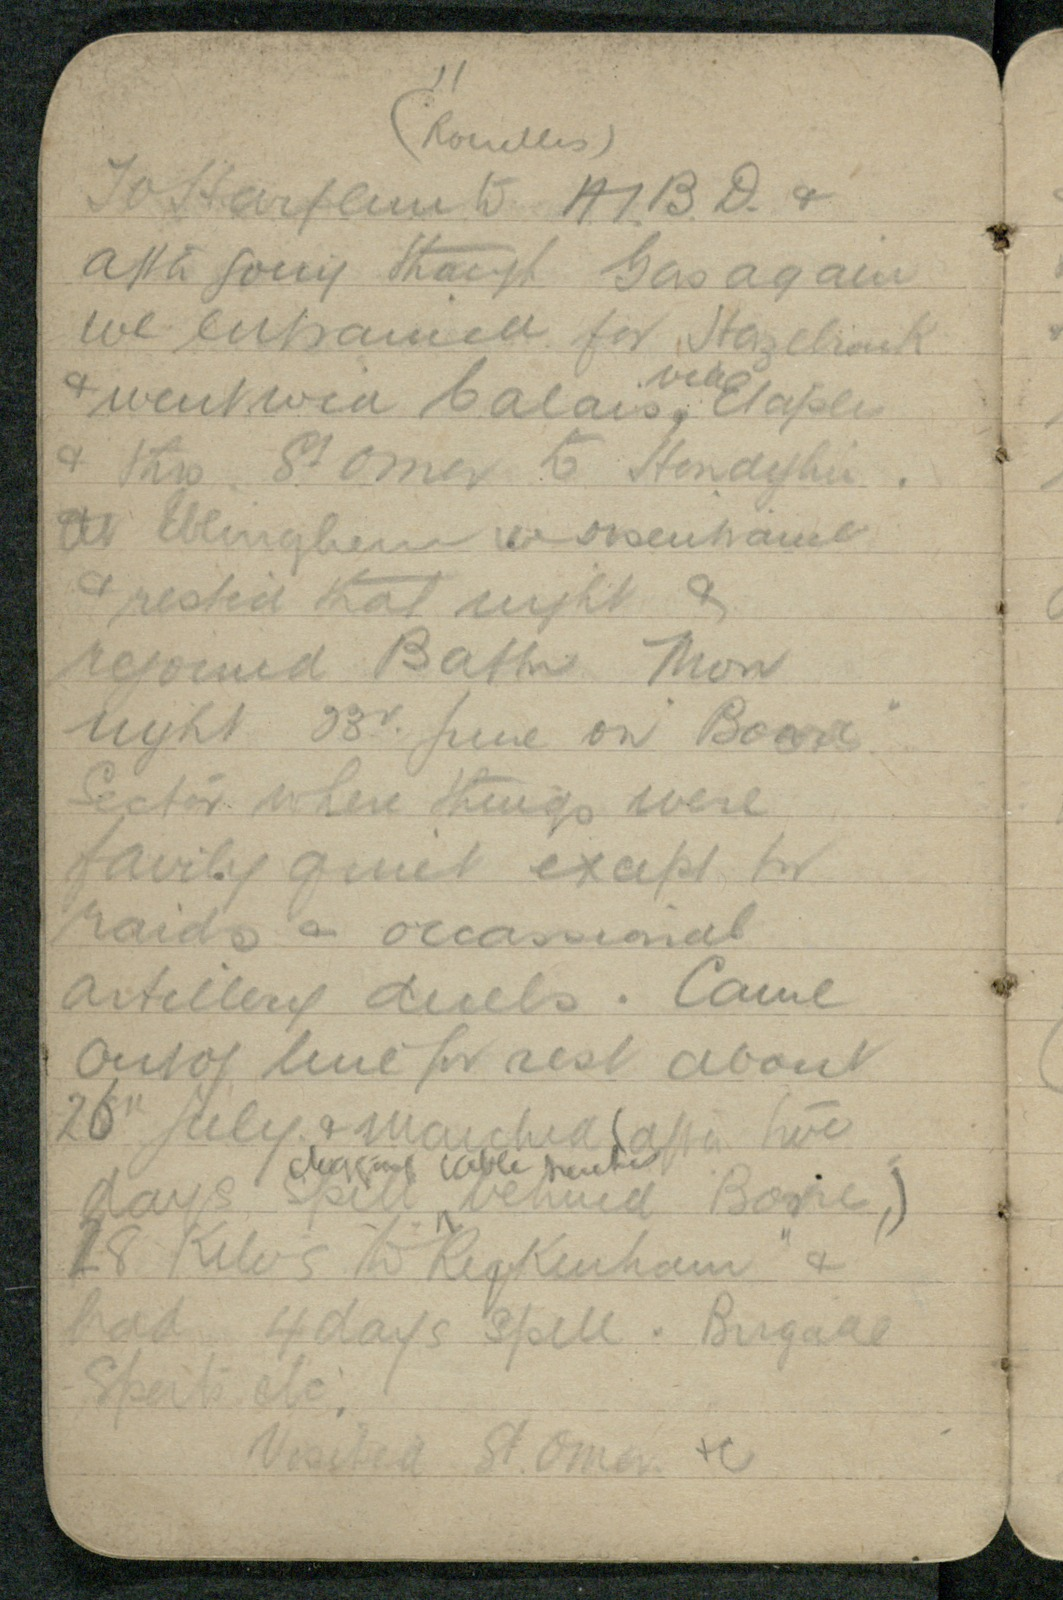 11
(Rouelles)
To Harfleur to A.I.B.D. &
after going though Gas again
we entrained for Hazebrouk
& went via Calais, via Etaples
& thro St Omer to Hondeghin.
At Eblinghem we disentrained
& rested that night &
rejoined Battn Mon
night 23r. June on "Borre"
Sector where things were
fairily quiet except for
raids & occassional
artillery duels. Came
out of line for rest about
26" July & marched (after two
days spell digging cable trenches behind Borre,)
28 Kilos to "Reqkenham" &
had 4 days spell. Brigade
Sports etc.
Visited St. Omer &c